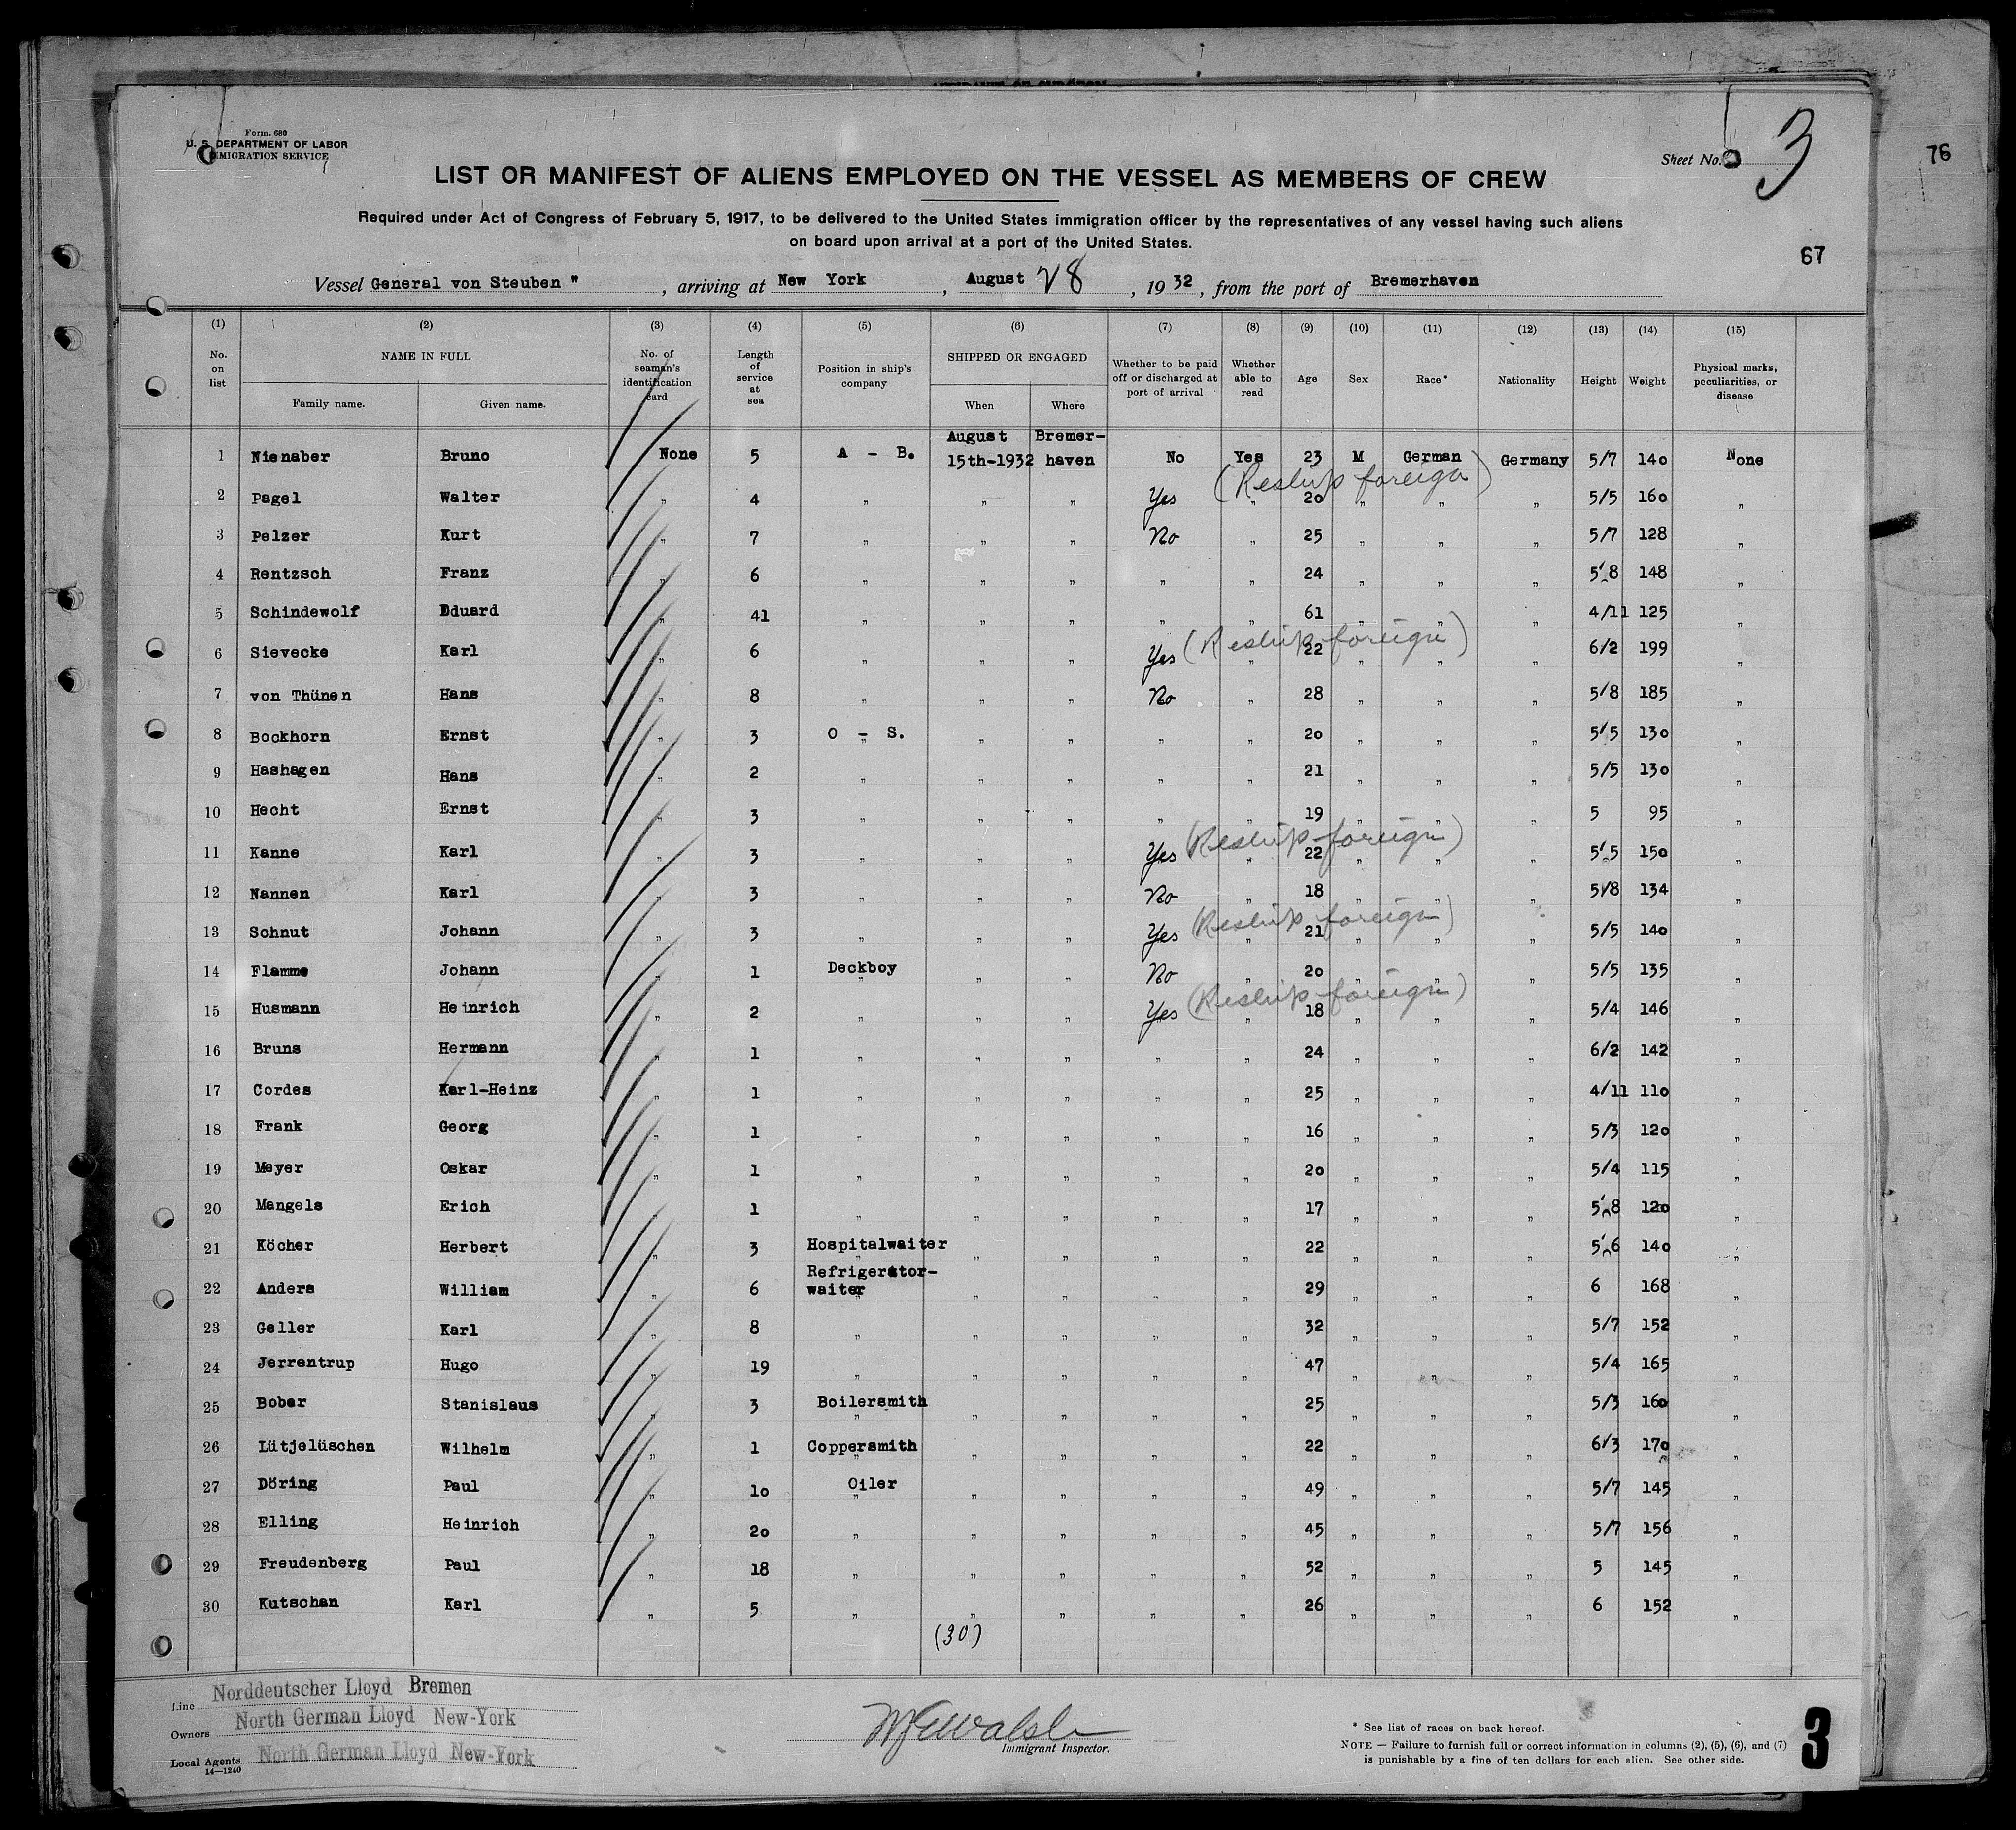 Form. 680
U. S. DEPARTMENT OF LABOR
IMMIGRATION SERVICE
Sheet No. 3
76
LIST OR MANIFEST OF ALIENS EMPLOYED ON THE VESSEL AS MEMBERS OF CREW
Required under Act of Congress of February 5, 1917, to be delivered to the United States immigration officer by the representatives of any vessel having such aliens
on board upon arrival at a port of the United States.
67
Vessel General von Steuben " , arriving at New York , August 28 , 1932 , from the port of Bremerhaven
(1) (2) (3) (4) (5) (6) (7) (8) (9) (10) (11) (12) (13) (14) (15)
No. on list NAME IN FULL Family name. Given name. No. of seaman's identification card Length of service at sea Position in ship's company SHIPPED OR ENGAGED When Where Whether to be paid off or discharged at port of arrival Whether able to read Age Sex Race* Nationality Height Weight Physical marks, peculiarities, or disease
1 Nienaber Bruno None 5 A - B. August 15th-1932 Bremer-haven No Yes 23 M German Germany 5/7 140 None
2 Pagel Walter " 4 " " " Yes (Reship foreign) " 20 " " " 5/5 160 "
3 Pelzer Kurt " 7 " " " No " 25 " " " 5/7 128 "
4 Rentzsch Franz " 6 " " " " " 24 " " " 5/8 148 "
5 Schindewolf Dduard " 41 " " " " " 61 " " " 4/11 125 "
6 Sievecke Karl " 6 " " " Yes (Reship foreign) " 22 " " " 6/2 199 "
7 von Thünen Hans " 8 " " " No " 28 " " " 5/8 185 "
8 Bockhorn Ernst " 3 O - S. " " " " 20 " " " 5/5 130 "
9 Hashagen Hans " 2 " " " " " 21 " " " 5/5 130 "
10 Hecht Ernst " 3 " " " " " 19 " " " 5 95 "
11 Kanne Karl " 3 " " " Yes (Reship foreign) " 22 " " " 5/5 150 "
12 Nannen Karl " 3 " " " No " 18 " " " 5/8 134 "
13 Schnut Johann " 3 " " " Yes (Reship foreign) " 21 " " " 5/5 140 "
14 Flamme Johann " 1 Deckboy " " No " 20 " " " 5/5 135 "
15 Husmann Heinrich " 2 " " " Yes (Reship foreign) " 18 " " " 5/4 146 "
16 Bruns Hermann " 1 " " " " " 24 " " " 6/2 142 "
17 Cordes Karl-Heinz " 1 " " " " " 25 " " " 4/11 110 "
18 Frank Georg " 1 " " " " " 16 " " " 5/3 120 "
19 Meyer Oskar " 1 " " " " " 20 " " " 5/4 115 "
20 Mangels Erich " 1 " " " " " 17 " " " 5/8 120 "
21 Köcher Herbert " 3 Hospitalwaiter " " " " 22 " " " 5/6 140 "
22 Anders William " 6 Refrigerator-waiter " " " " 29 " " " 6 168 "
23 Geller Karl " 8 " " " " " 32 " " " 5/7 152 "
24 Jerrentrup Hugo " 19 " " " " " 47 " " " 5/4 165 "
25 Bober Stanislaus " 3 Boilersmith " " " " 25 " " " 5/3 160 "
26 Lütjelüschen Wilhelm " 1 Coppersmith " " " " 22 " " " 6/3 170 "
27 Döring Paul " 10 Oiler " " " " 49 " " " 5/7 145 "
28 Elling Heinrich " 20 " " " " " 45 " " " 5/7 156 "
29 Freudenberg Paul " 18 " " " " " 52 " " " 5 145 "
30 Kutschan Karl " 5 " " " " " 26 " " " 6 152 "
(30)
Line Norddeutscher Lloyd Bremen
Owners North German Lloyd New-York
Local Agents North German Lloyd New-York
14—1240
Immigrant Inspector.
* See list of races on back hereof.
NOTE — Failure to furnish full or correct information in columns (2), (5), (6), and (7)
is punishable by a fine of ten dollars for each alien. See other side.
3